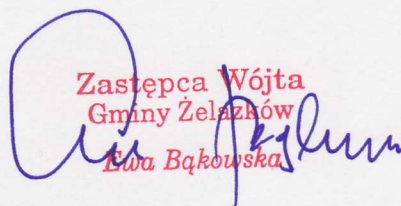 Zastępca Wójta
Gminy Żelazków
Ewa Bąkowska